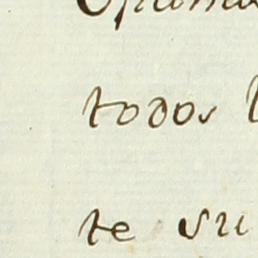 todos
te su